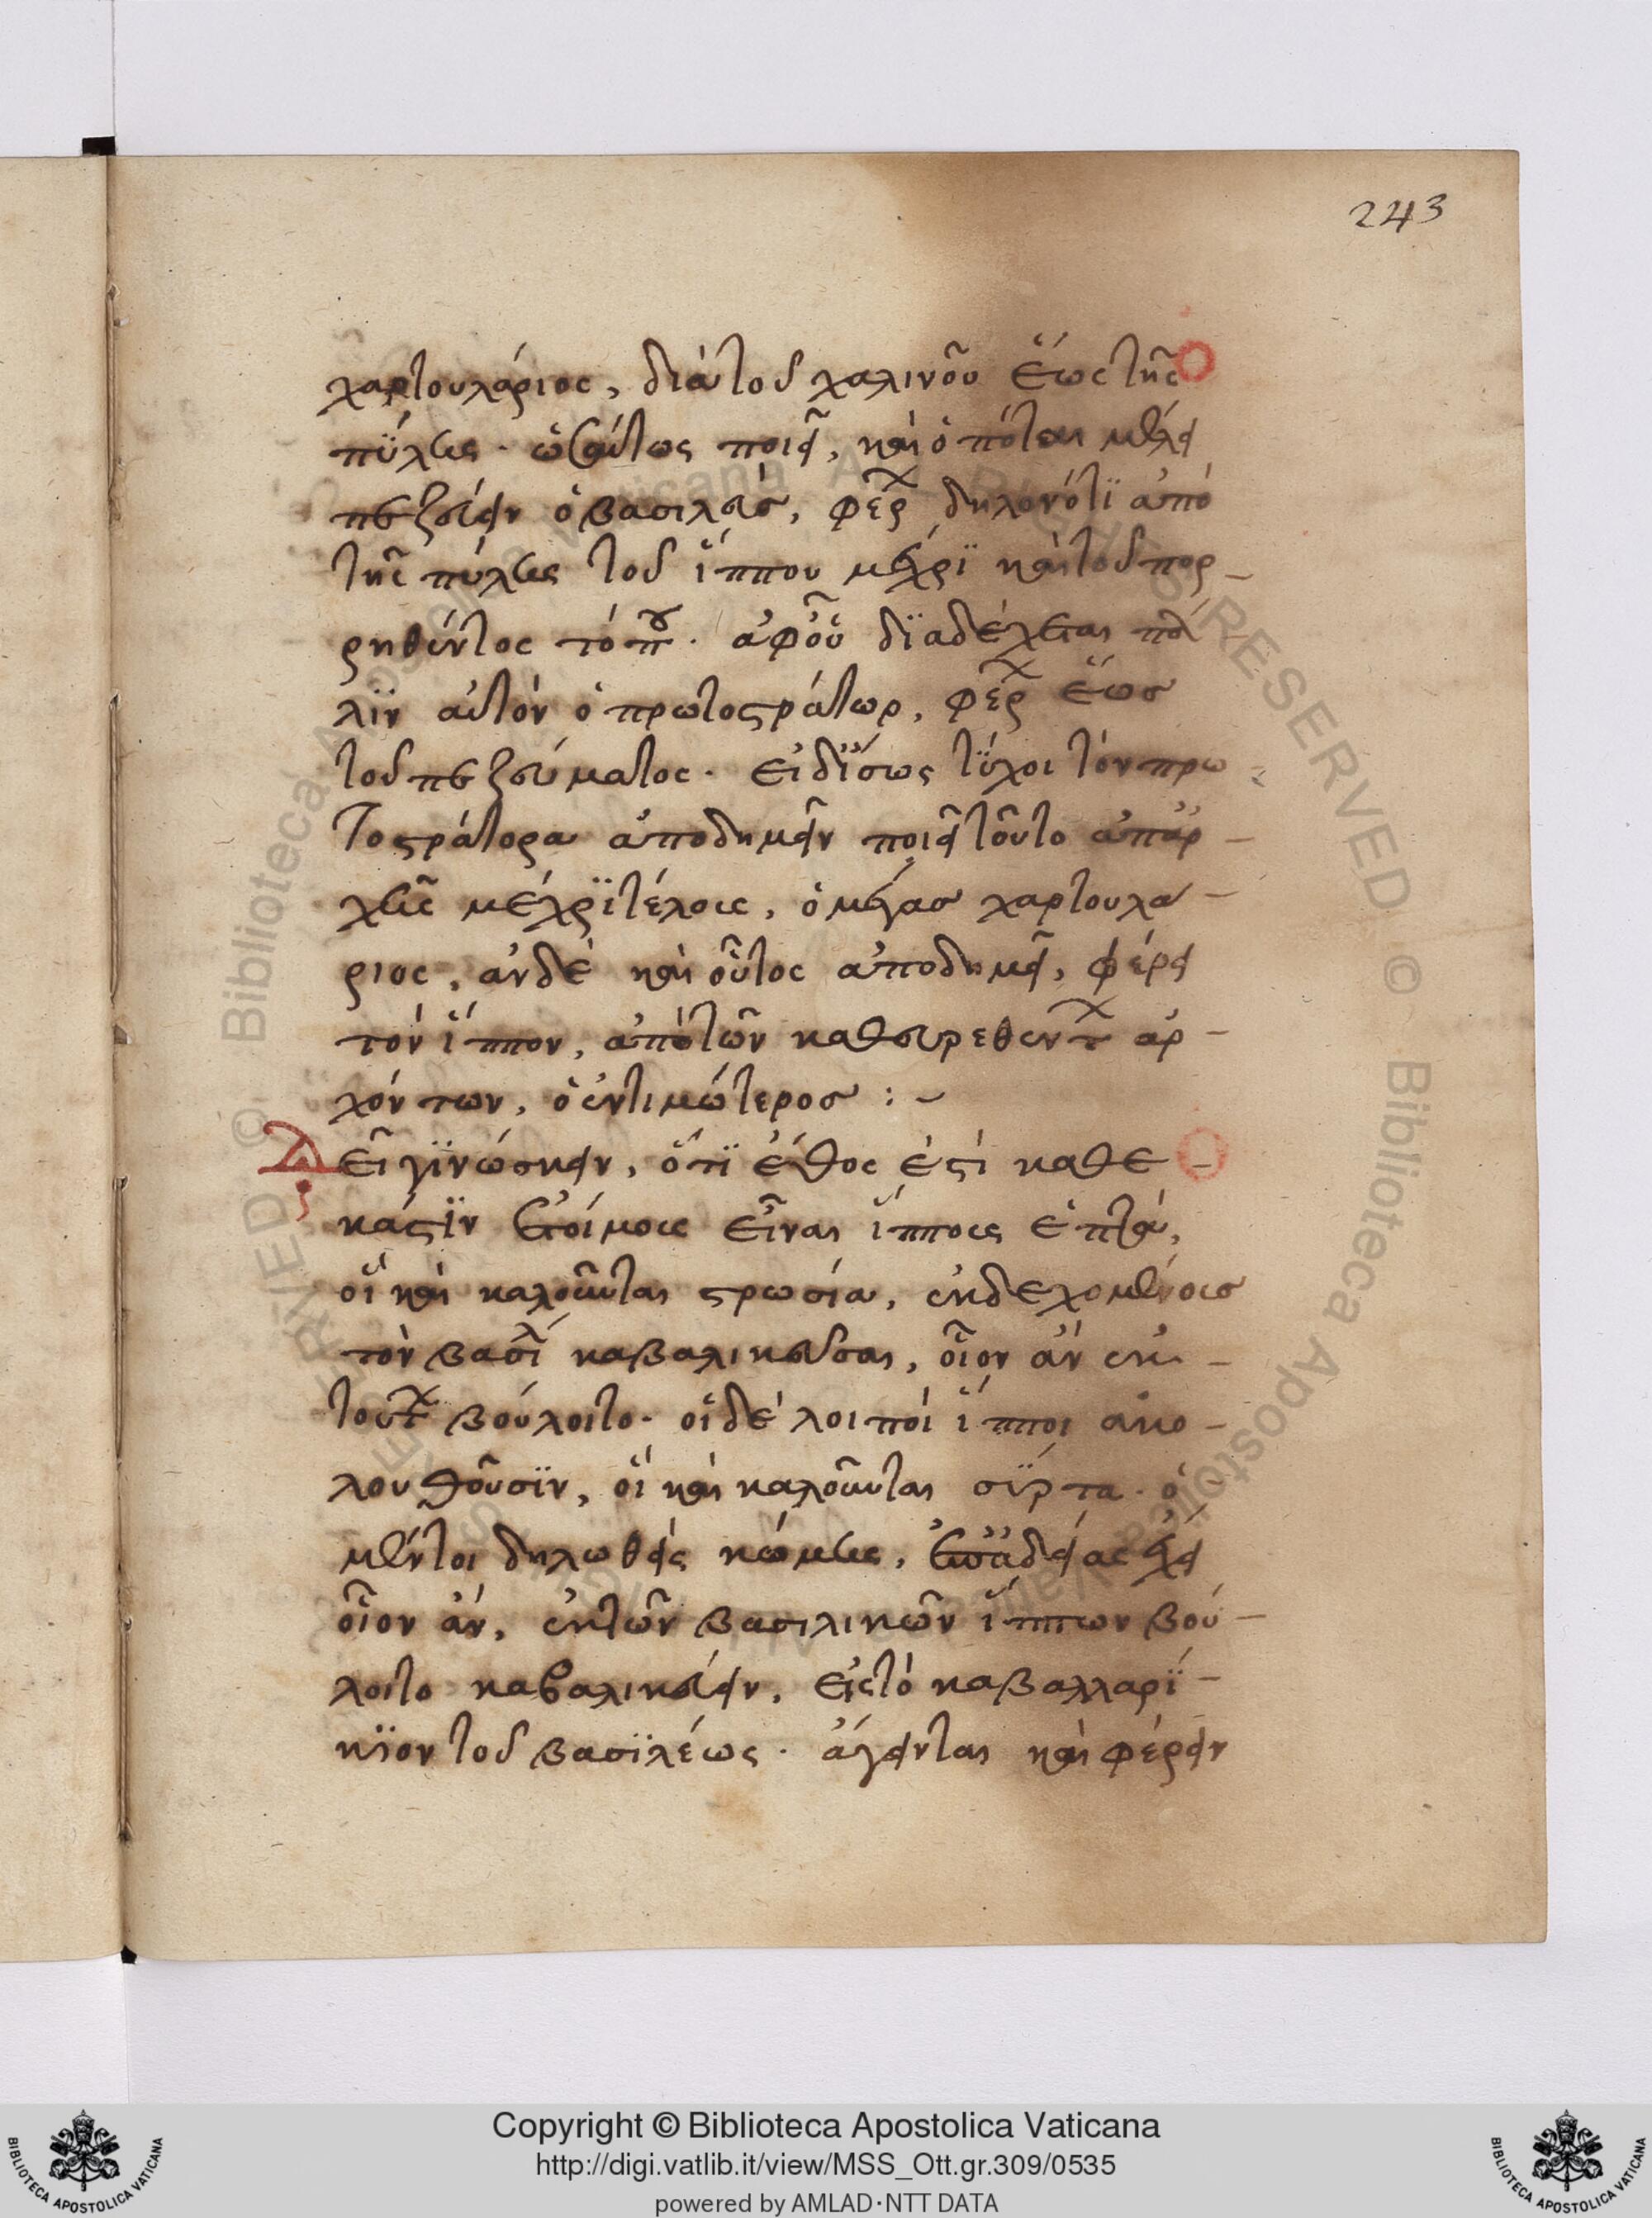 243
χαρτουλάριος, διὰ τοῦ χαλινοῦ ἕως τῆς
πύλης. ὡσαύτως ποιεῖ, καὶ ὁπόταν μέλει
πεζεύειν ὁ βασιλεὺς, φέρων δηλονότι ἀπὸ
τῆς πύλης τοῦ ἵππου μέχρι καὶ τοῦ πορ-
ρηθέντος τόπου. ἀφοῦ διαδέχεται πά-
λιν αὐτὸν ὁ πρωτοστράτωρ, φέρων ἕως
τοῦ πεζεύματος. εἰ δ' ἴσως τύχοι τὸν πρω
τοστράτορα ἀποδημεῖν ποιεῖ τοῦτο ἀπ' ἀρ-
χῆς μέχρι τέλους, ὁ μέγας χαρτουλά-
ριος, ἂν δὲ καὶ οὗτος ἀποδημεῖ, φέρει
τὸν ἵππον, ἀπὸ τῶν καθευρεθέντων ἀρ-
χόντων, ὁ ἐντιμώτερος :-
Δεῖ γινώσκειν, ὅτι ἔθος ἐστὶ καθε-
κάστην ἑτοίμους εἶναι ἵππους ἑπτὰ,
οἳ καὶ καλοῦνται στρωσία, ἐκδεχομένους
τὸν βασιλέα καβαλικεῦσαι, οἷον ἂν ἐκ
τούτων βούλοιτο. οἱ δὲ λοιποὶ ἵπποι ἀκο-
λουθοῦσιν, οἳ καὶ καλοῦνται σύρτα. ὁ
μέντοι δηλωθεὶς κόμης, ἐπ' ἀδείας ἔχει
οἷον ἂν, ἐκ τῶν βασιλικῶν ἵππων βού-
λοιτο καβαλικεύειν, εἰς τὸ καβαλλαρί-
κιον τοῦ βασιλέως. ἄγονται καὶ φέρειν
Copyright © Biblioteca Apostolica Vaticana
http://digi.vatlib.it/view/MSS_Ott.gr.309/0535
powered by AMLAD·NTT DATA